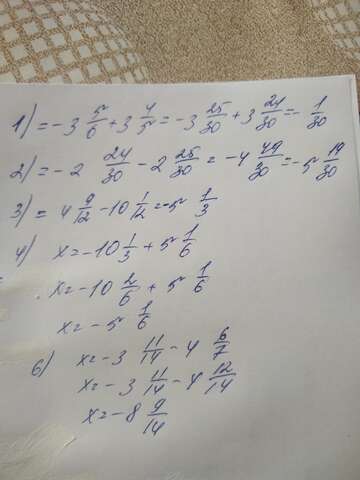 1) = -3 5/6 + 3 4/5 = -3 25/30 + 3 24/30 = - 1/30
2) = -2 24/30 - 2 25/30 = -4 49/30 = -5 19/30
3) = 4 9/12 - 10 1/12 = -5 1/3
4) x = -10 1/3 + 5 1/6
x = -10 2/6 + 5 1/6
x = -5 1/6
6) x = -3 11/14 - 4 6/7
x = -3 11/14 - 4 12/14
x = -8 9/14